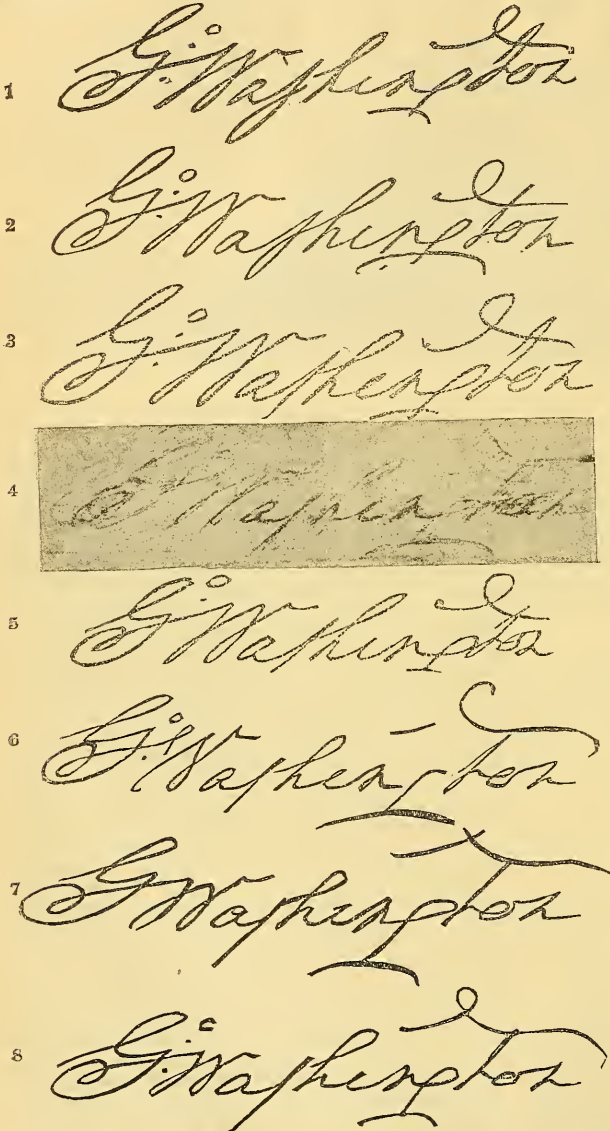 1 G. Washington
2 G. Washington
3 G. Washington
4 G Washington
5 G. Washington
6 G. Washington
7 G Washington
8 G. Washington